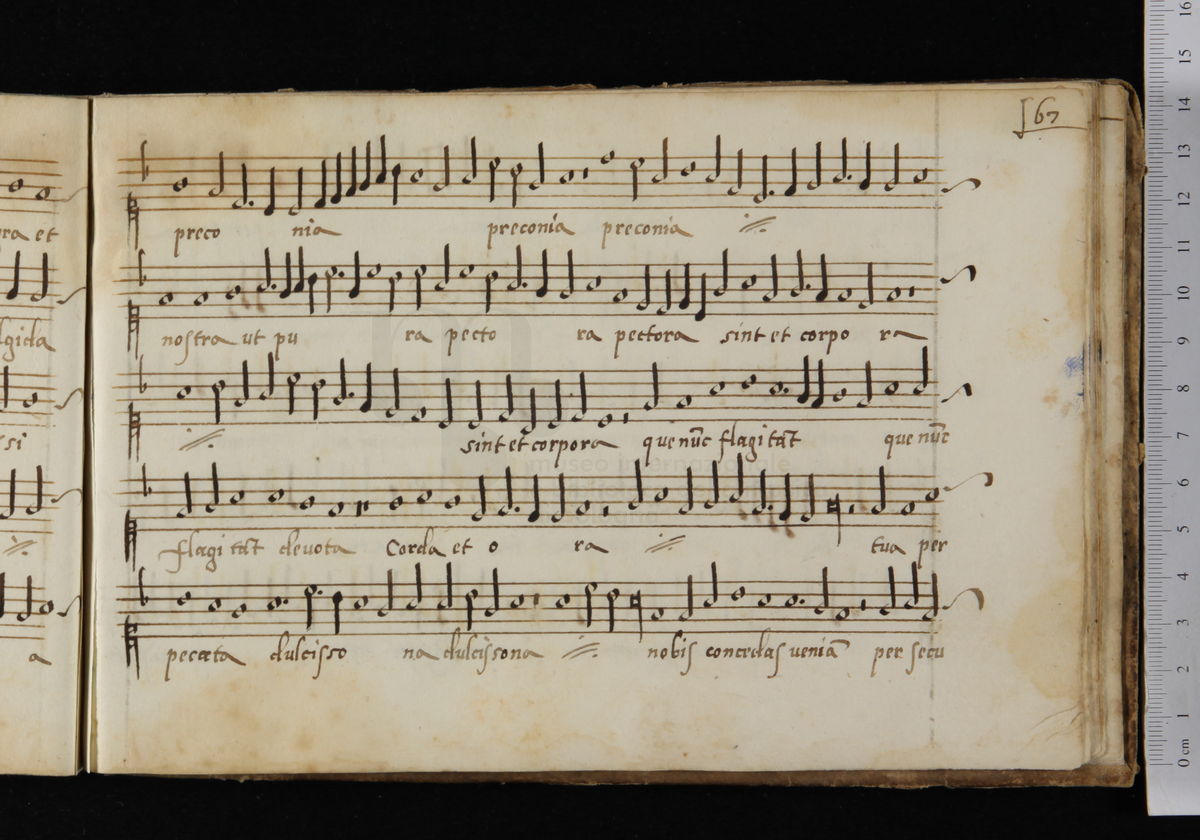 [67
preco nia preconia preconia
nostra ut pu ra pecto ra pectora sint et corpo ra
sint et corpora que nūc flagitāt que nūc
flagi tāt deuota Corda et o ra tua per
pecata dulcisso na dulcissona nobis concedas ueniā per secu
ra et
lgida
si
a
museo internazionale
16
15
14
13
12
11
10
9
8
7
6
5
4
3
2
1
0 cm